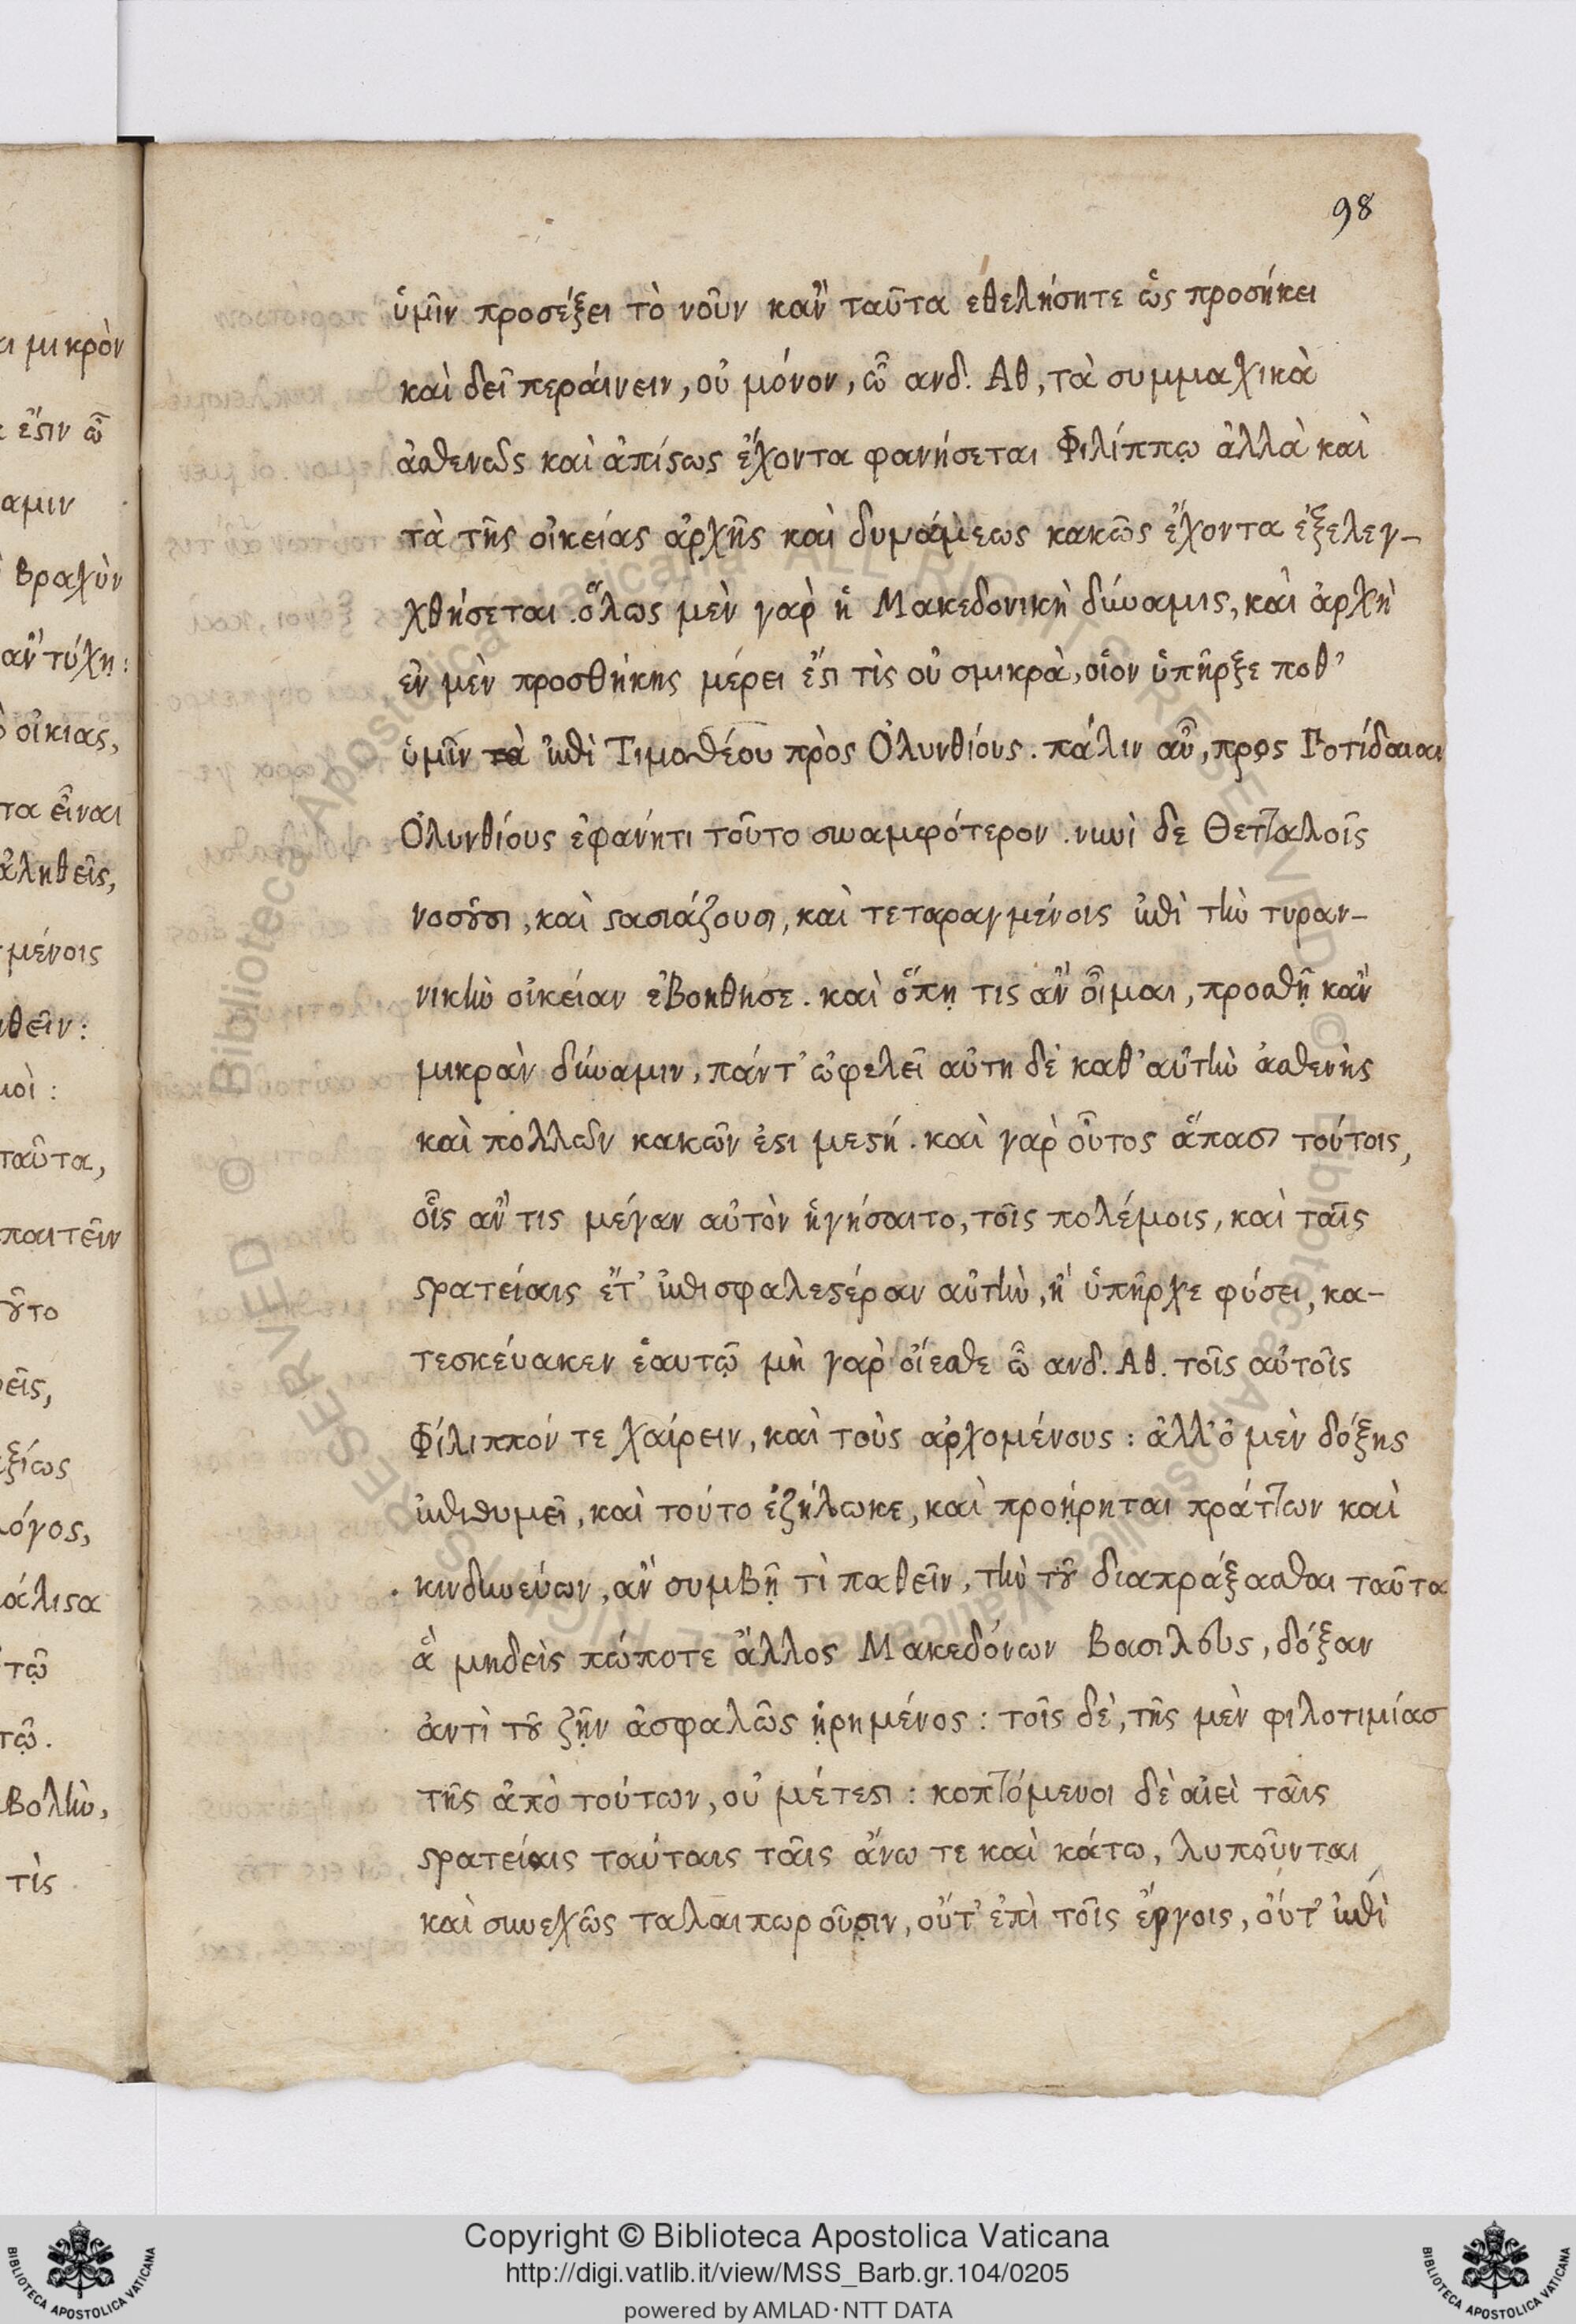 98
ὑμῖν προσέξει τὸ νοῦν κἂν ταῦτα ἐθελήσητε ὡς προσήκει
καὶ δεῖ περαίνειν, οὐ μόνον, ὦ ανδ. Αθ, τὰ συμμαχικὰ
ἀσθενῶς καὶ ἀπίστως ἔχοντα φανήσεται Φιλίππῳ ἀλλὰ καὶ
τὰ τῆς οἰκείας ἀρχῆς καὶ δυνάμεως κακῶς ἔχοντα ἐξελεγ-
χθήσεται. ὅλως μὲν γαρ ἡ Μακεδονικὴ δύναμις, καὶ ἀρχὴ
ἐν μὲν προσθήκης μέρει ἔστι τὶς οὐ σμικρὰ, οἷον ὑπῆρξε ποθ'
ὑμῖν ἐπὶ Τιμοθέου πρὸς Ὀλυνθίους. πάλιν αὖ, προς Ποτίδαιαν
Ὀλυνθίους ἐφανήτι τοῦτο συναμφότερον. νυνὶ δε Θετταλοῖς
νοσοῦσι, καὶ στασιάζουσι, καὶ τεταραγμένοις ἐπὶ τὴν τυραν-
νικὴν οἰκείαν ἐβοηθησε. καὶ ὅπῃ τις ἂν οἶμαι, προσθῇ κἂν
μικρὰν δύναμιν, πάντ' ὠφελεῖ αὕτη δὲ καθ' αὑτὴν ἀσθενὴς
καὶ πολλῶν κακῶν ἐστι μεστή. καὶ γαρ οὗτος ἅπασι τούτοις,
οἷς ἄν τις μέγαν αὐτὸν ἡγήσαιτο, τοῖς πολέμοις, καὶ ταῖς
στρατείαις ἔτ' ἐπισφαλεστέραν αὐτὴν, ἢ ὑπῆρχε φύσει, κα-
τεσκεύακεν ἑαυτῷ μὴ γαρ οἴεσθε ὦ ανδ. Αθ. τοῖς αὐτοῖς
Φίλιππόν τε χαίρειν, καὶ τοὺς αρχομένους: ἀλλ' ὁ μὲν δόξης
ἐπιθυμεῖ, καὶ τούτο ἐζήλωκε, καὶ προῄρηται πράττων καὶ
κινδυνεύων, ἂν συμβῇ τὶ παθεῖν, τὴν τοῦ διαπράξασθαι ταῦτα
ἃ μηδεὶς πώποτε ἄλλος Μακεδόνων Βασιλεὺς, δόξαν
ἀντὶ τοῦ ζῇν ἀσφαλῶς ᾑρημένος: τοῖς δὲ, τῆς μὲν φιλοτιμίασ
τῆς ἀπὸ τούτων, οὐ μέτεστι: κοπτόμενοι δὲ αἰεὶ ταῖς
στρατείαις ταύταις ταῖς ἄνω τε καὶ κάτω, λυποῦνται
καὶ συνεχῶς ταλαιπωροῦσιν, οὔτ' ἐπὶ τοῖς ἔργοις, οὔτ' ἐπὶ
ι μικρὸν
ἔστιν ὦ
αμιν
βραχὺν
ἂν τύχῃ:
οἰκιας,
τα εἶναι
ἀληθεῖς,
μένοις
θεῖν:
μοὶ:
ταῦτα,
παιτεῖν
οῦτο
εῖς,
ξίως
λόγος,
άλιστα
τῷ
τῷ.
βολὴν,
τὶς
Copyright © Biblioteca Apostolica Vaticana
http://digi.vatlib.it/view/MSS_Barb.gr.104/0205
powered by AMLAD·NTT DATA
BIBLIOTECA APOSTOLICA VATICANA
BIBLIOTECA APOSTOLICA VATICANA